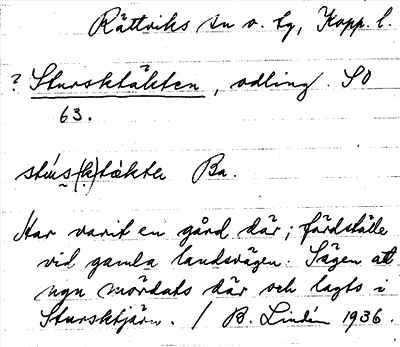 Rättviks sn o. tg, Kopp. l.
? Stursktäkten, odling. SO
63.
stu̇s(k)täkta Ba.
Har varit en gård där; färdställe
vid gamla landsvägen. Sägen att
ngn mördats där och lagts i
Stursktjärn. / B. Lindén 1936.